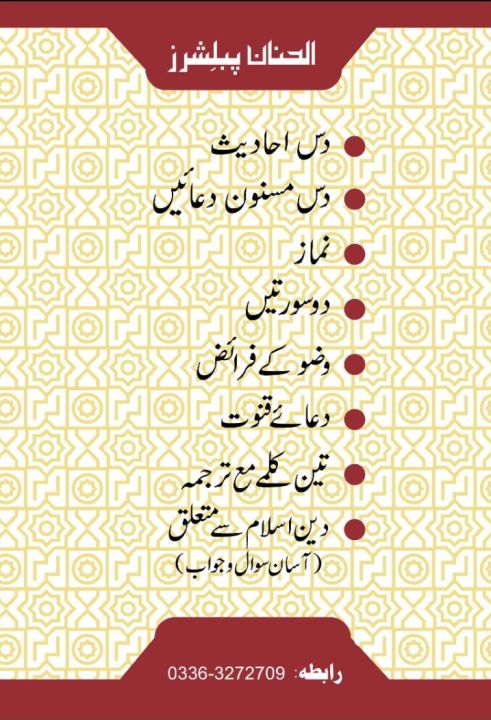 الحنان پبلِشرز
دس احادیث
دس مسنون دعائیں
نماز
دو سورتیں
وضو کے فرائض
دعائے قنوت
تین کلمے مع ترجمہ
دین اسلام سے متعلق
(آسان سوال و جواب)
رابطہ: 0336-3272709